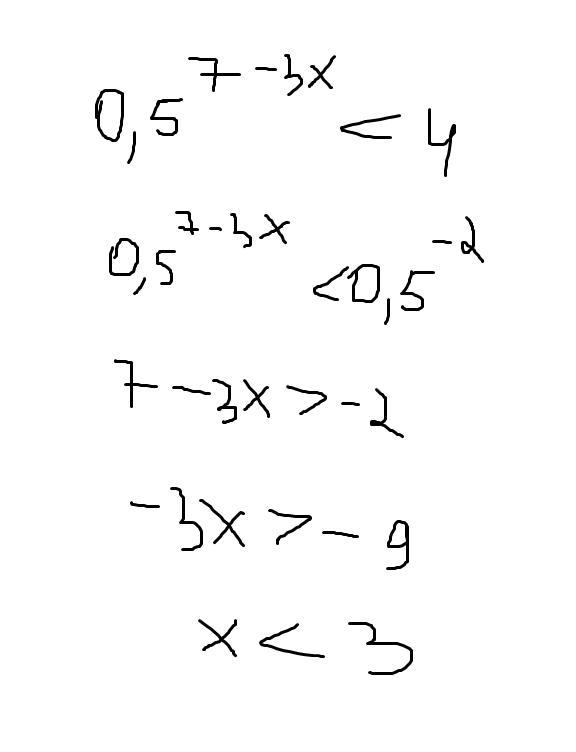 0,5^{7-3x} < 4
0,5^{7-3x} < 0,5^{-2}
7-3x > -2
-3x > -9
x < 3